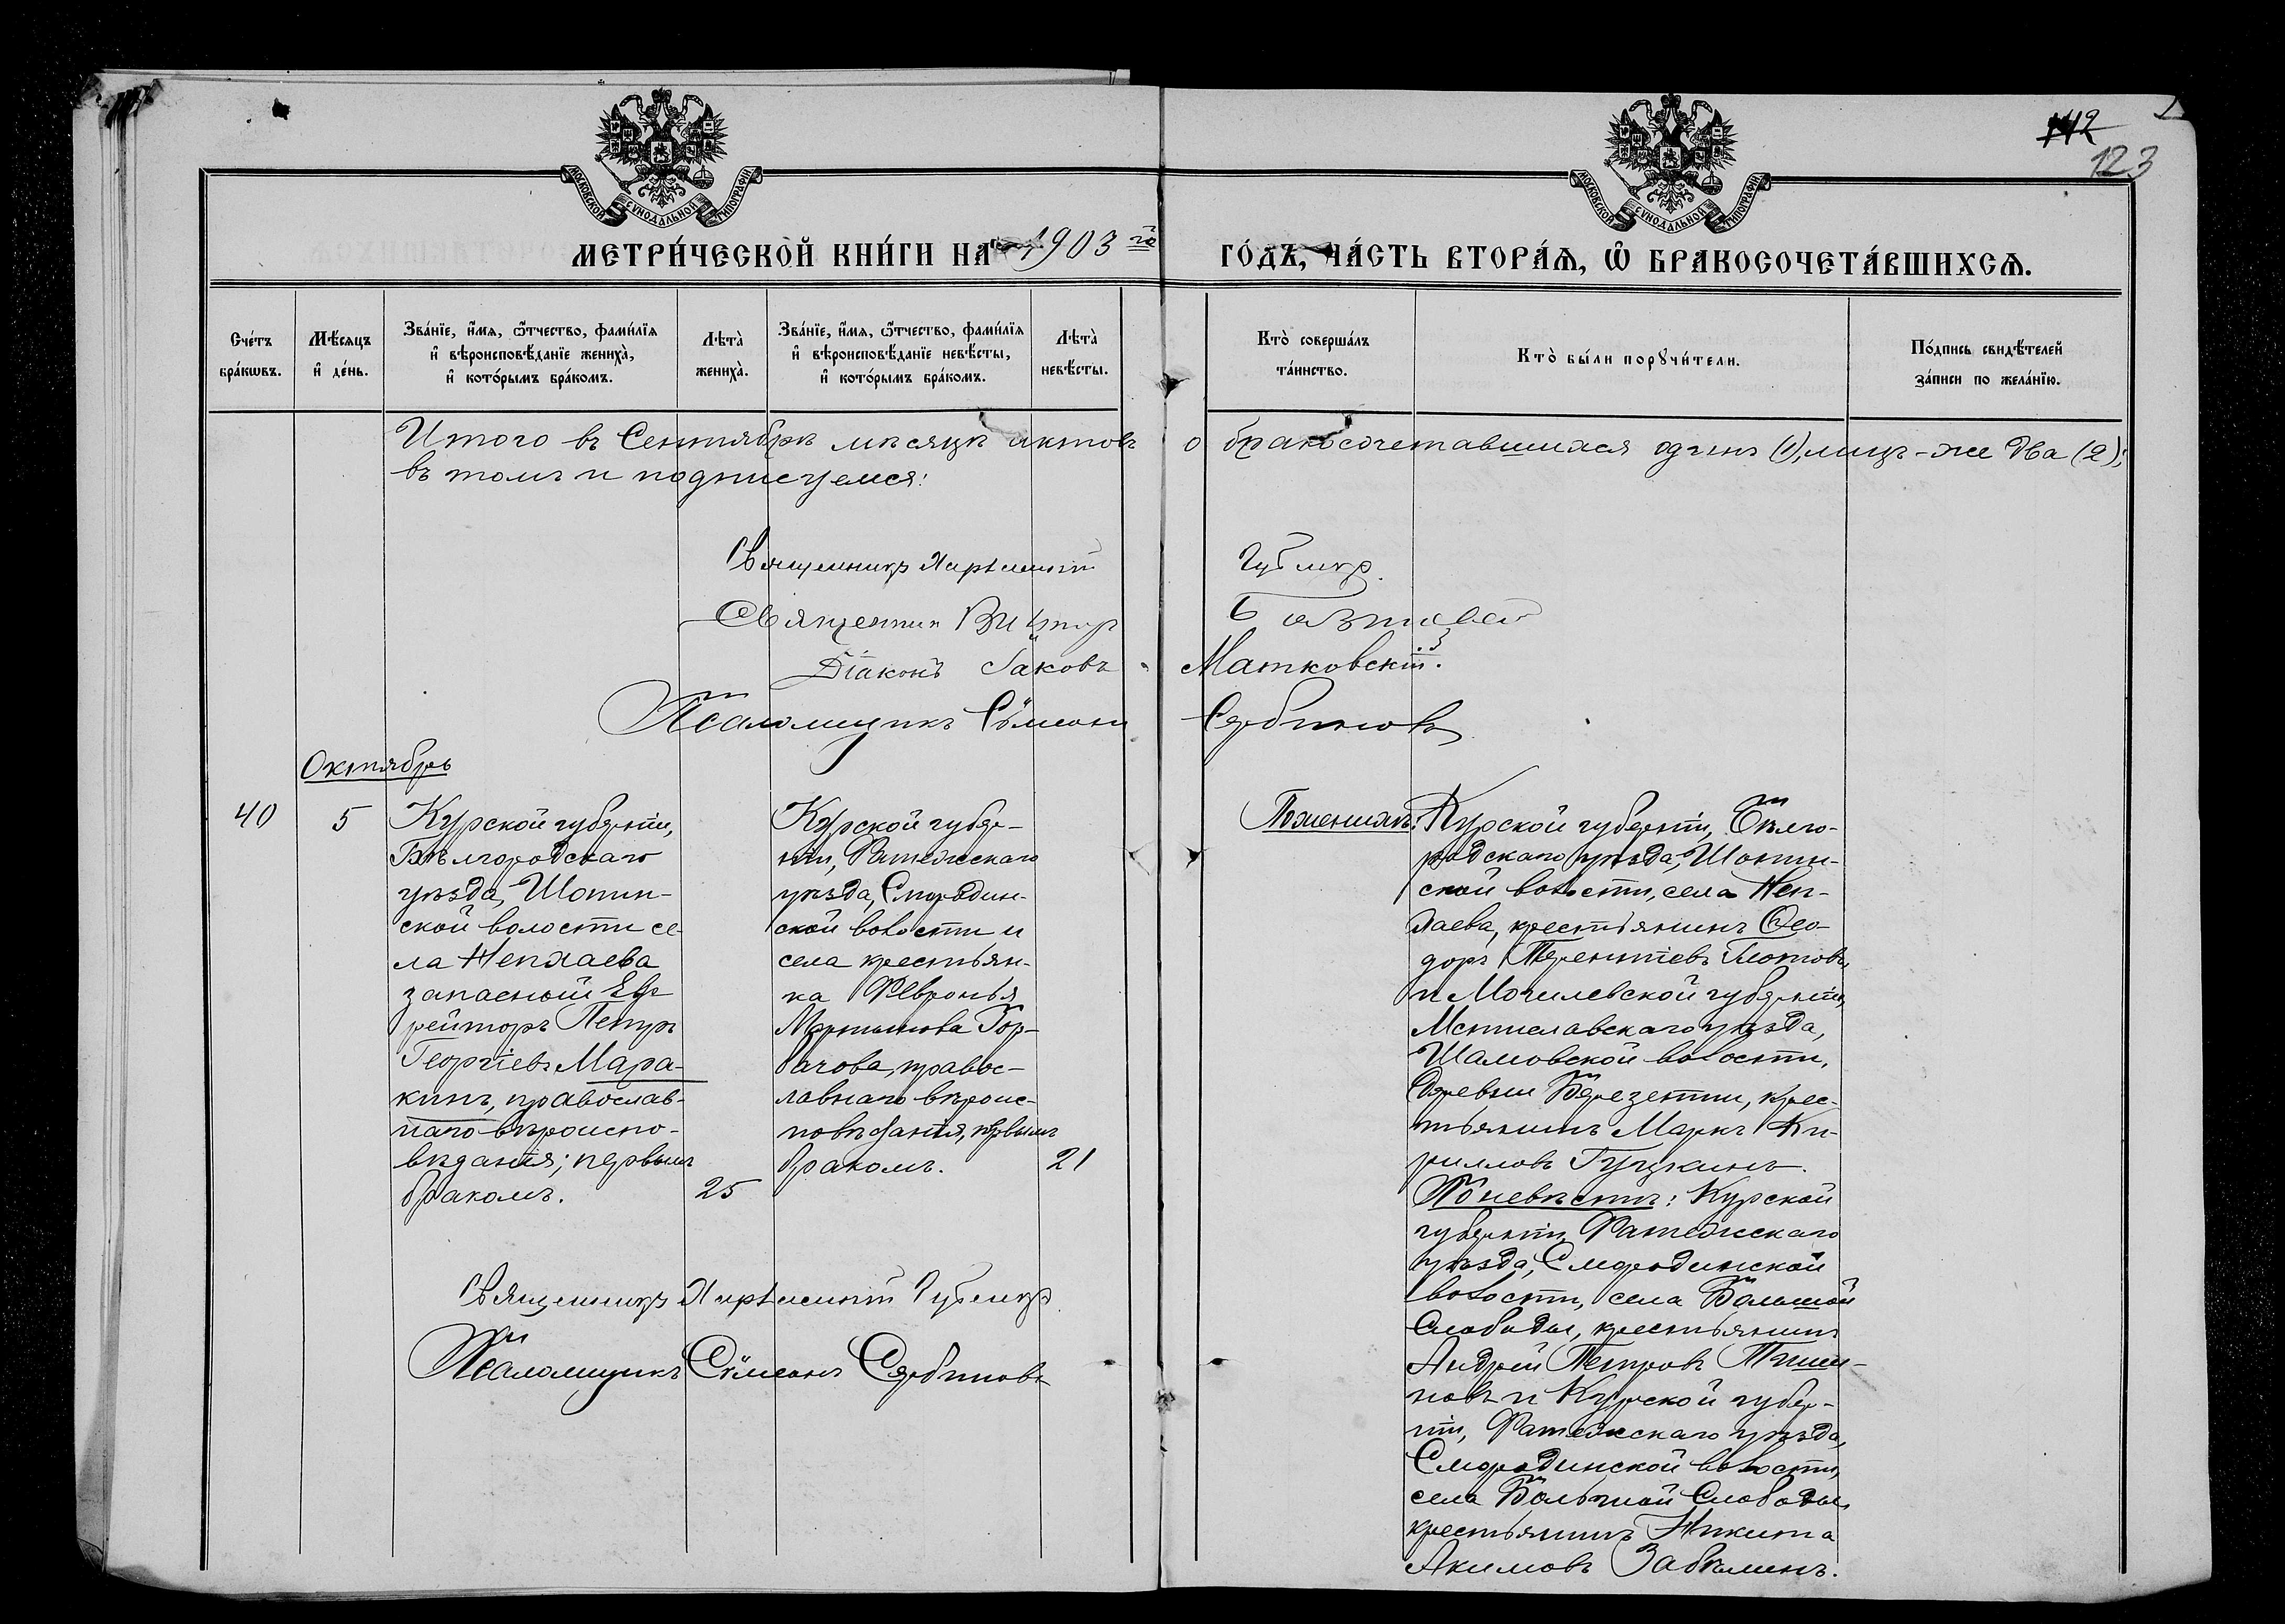 142
123
МОСКОВСКОЙ СѴНОДАЛЬНОЙ ТИПОГРАФІИ
МОСКОВСКОЙ СѴНОДАЛЬНОЙ ТИПОГРАФІИ
МЕТРИ́ЧЕСКОЙ КНИ́ГИ НА 1903 го ГО́ДЪ, ЧА́СТЬ ВТОРА́Ѧ, Ѡ҆ БРАКОСОЧЕТА́ВШИХСѦ.
Сче́тъ
бра́кѡвъ.
Мѣ́сяцъ
и҆ де́нь.
Зва́нїе, и҆́мя, ѻ҆́тчество, фами́лїя
и҆ вѣроисповѣ́данїе жениха̀,
и҆ кото́рымъ бра́комъ.
Лѣта̀
жениха̀.
Зва́нїе, и҆́мя, ѻ҆́тчество, фами́лїя
и҆ вѣроисповѣ́данїе невѣ́сты,
и҆ кото́рымъ бра́комъ.
Лѣта̀
невѣ́сты.
Кто̀ соверша́лъ
та́инство.
Кто̀ бы́ли порꙋчи́тели.
По́дпись свидѣ́телей
за́писи по жела́нїю.
Итого въ Сентябрѣ мѣсяцѣ актовъ о бракосочетавшихся одинъ (1), лицъ-же два (2);
въ томъ и подписуемся:
Священникъ
Священник Виктор
Діаконъ Іаковъ Матковскій.
Псаломщикъ Сѵмеонъ Сербиновъ
Октябрь
40
5
Курской губерніи,
Бѣлгородскаго
уѣзда, Шопин-
ской волости се-
ла Непхаева
запасной Еф-
рейторъ Петръ
Георгіевъ Мара-
кинъ, православ-
наго вѣроиспо-
вѣданія; первымъ
бракомъ.
25
Курской губер-
ніи, Фатежскаго
уѣзда, Смородин-
ской волости и
села крестьян-
ка Февронья
Мартинова Гор-
бачова, правос-
лавнаго вѣроис-
повѣданія, первымъ
бракомъ.
21
По женихѣ:
Курской губерніи, Бѣлго-
родскаго уѣзда, Шопин-
ской волости, села Неп-
хаева, крестьянинъ Ѳео-
доръ Терентіевъ
и Могилевской губерніи,
Мстиславскаго уѣзда,
Шамовской волости,
деревни крес-
тьянинъ Маркъ Ки-
рилловъ
По невѣстѣ: Курской
губерніи, Фатежскаго
уѣзда, Смородинской
волости, села Большой
Слободы, крестьянинъ
Андрей Петровъ
новъ и Курской губер-
ніи, Фатежскаго уѣзда,
Смородинской волости,
села Большой Слободы,
крестьянинъ Никита
Акимовъ Забѣлинъ.
Священникъ
Псаломщикъ Сѵмеонъ Сербиновъ